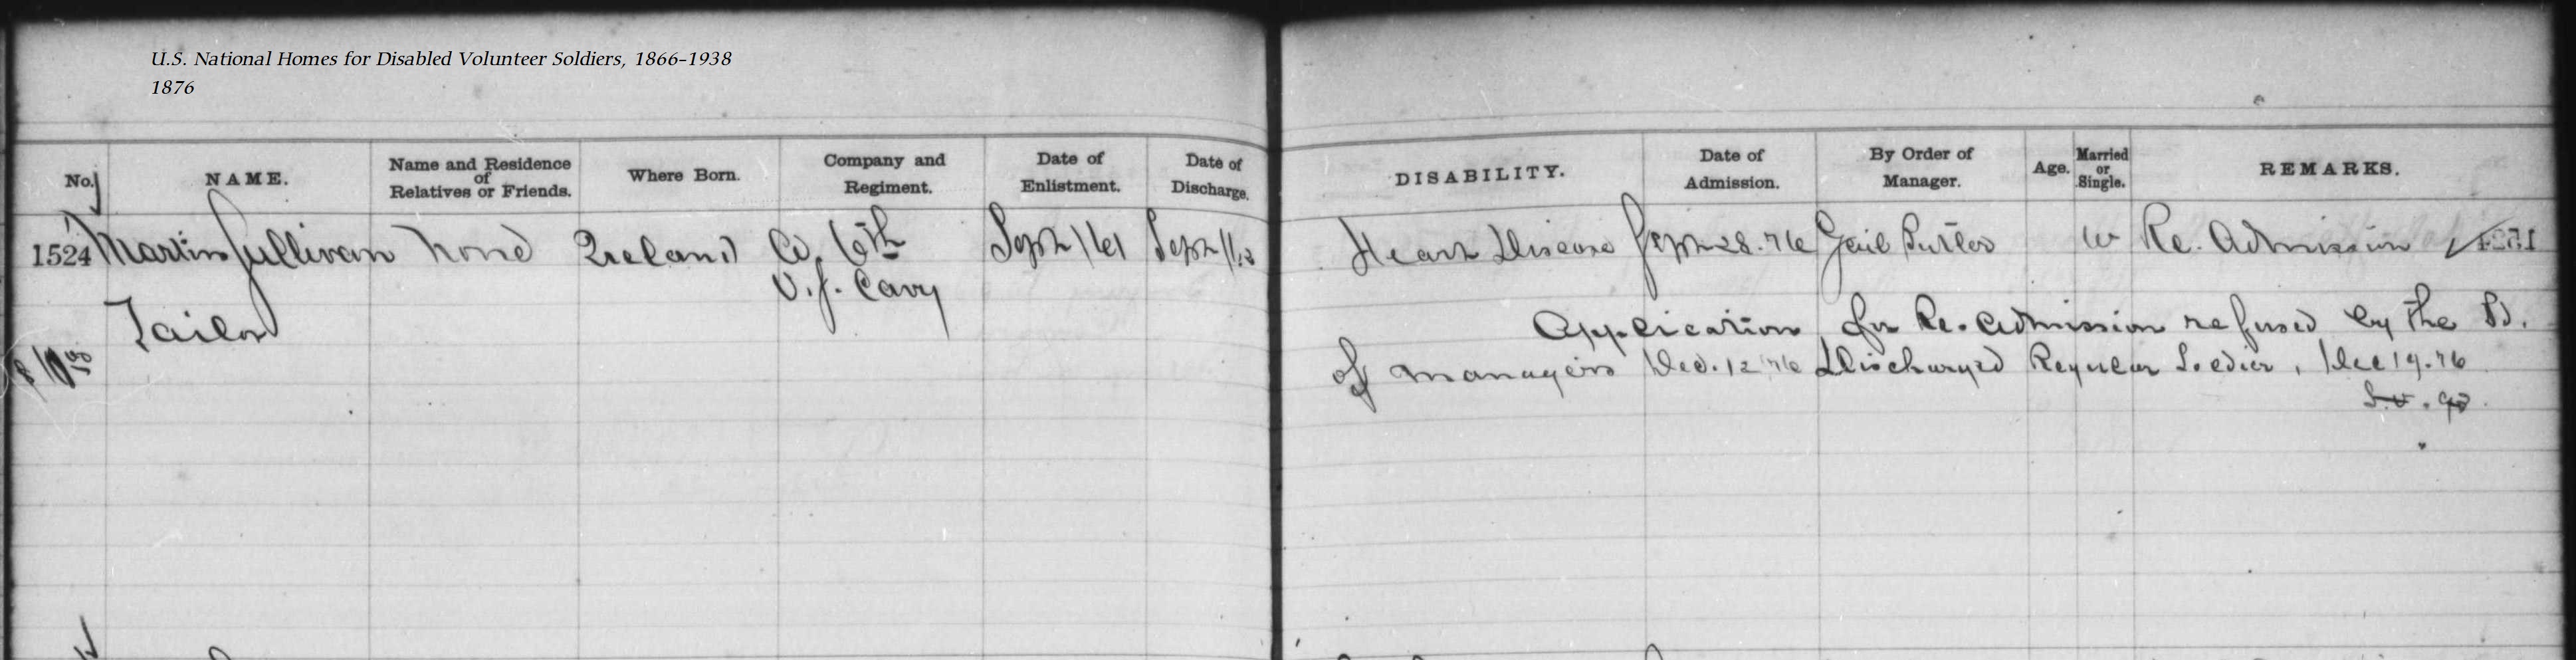 U.S. National Homes for Disabled Volunteer Soldiers, 1866–1938
1876
No. NAME. Name and Residence of Relatives or Friends. Where Born. Company and Regiment. Date of Enlistment. Date of Discharge. DISABILITY. Date of Admission. By Order of Manager. Age. Married or Single. REMARKS.
1524 Martin Sullivan None Ireland Co. 6th Sept 1/61 Sept Heart Disease Sept 28. 76 Genl Butler W Re. Admission
U.S. Cavy
Tailor
Application for Re. Admission refused by the Bd.
of Managers Dec. 12 '76 Discharged Regular Soldier, Dec 19. 76